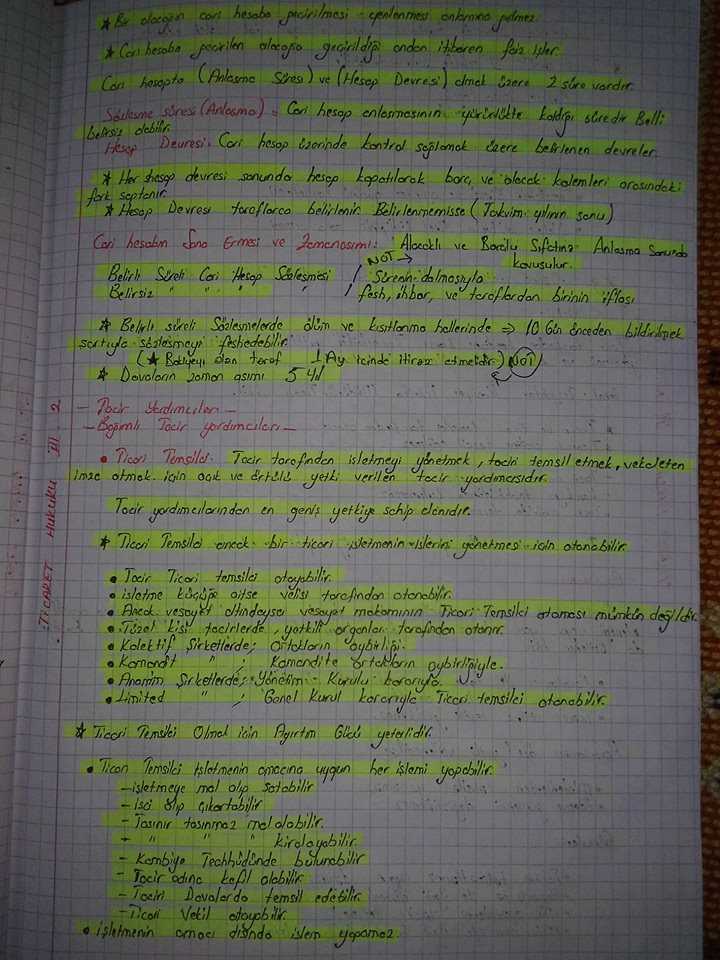 ★ Bir alacağın cari hesaba geçirilmesi yenilenmesi anlamına gelmez.
★ Cari hesaba geçirilen alacağa geçirildiği andan itibaren faiz işler.
Cari hesapta (Anlaşma Süresi) ve (Hesap Devresi) olmak üzere 2 süre vardır.
Sözleşme süresi (Anlaşma) = Cari hesap anlaşmasının yürürlükte kaldığı süredir Belli
belirsiz olabilir.
Hesap Devresi: Cari hesap üzerinde kontrol sağlamak üzere belirlenen devreler.
★ Her hesap devresi sonunda hesap kapatılarak borç ve alacak kalemleri arasındaki
fark saptanır.
★ Hesap Devresi taraflarca belirlenir. Belirlenmemişse (Takvim yılının sonu)
Cari hesabın Sona Ermesi ve Zamanaşımı: Alacaklı ve Borçlu Sıfatına Anlaşma Sonunda
kavuşulur.
NOT →
Belirli Süreli Cari Hesap Sözleşmesi / Sürenin dolmasıyla
Belirsiz " " " " / fesh, ihbar, ve taraflardan birinin iflası
★ Belirli süreli Sözleşmelerde ölüm ve kısıtlanma hallerinde ⇒ 10 Gün önceden bildirilmek
şartıyla sözleşmeyi feshedebilir.
(★ Bakiyeyi alan taraf 1 Ay içinde itiraz etmelidir.) NOT
★ Davaların zaman aşımı 5 Yıl
- Tacir Yardımcıları -
- Bağımlı Tacir yardımcıları -
• Ticari Temsilci: Tacir tarafından işletmeyi yönetmek, taciri temsil etmek, vekaleten
imza atmak için açık ve örtülü yetki verilen tacir yardımcısıdır.
Tacir yardımcılarından en geniş yetkiye sahip olanıdır.
★ Ticari Temsilci ancak bir ticari işletmenin işlerini yönetmesi için atanabilir.
• Tacir Ticari temsilci atayabilir.
• işletme küçüğe aitse velisi tarafından atanabilir.
• Ancak vesayet altındaysa vesayet makamının Ticari Temsilci ataması mümkün değildir.
• Tüzel kişi tacirlerde, yetkili organlar tarafından atanır.
• Kolektif Şirketlerde; Ortakların oybirliği.
• Komandit " ; Komandite ortakların oybirliğiyle.
• Anonim Şirketlerde; Yönetim Kurulu kararıyla.
• Limited " ; Genel Kurul kararıyla Ticari temsilci atanabilir.
★ Ticari Temsilci Olmak için Ayırtım Gücü yeterlidir.
• Ticari Temsilci işletmenin amacına uygun her işlemi yapabilir.
- işletmeye mal alıp satabilir
- işçi alıp çıkartabilir
- Taşınır taşınmaz mal alabilir.
- " " " kiralayabilir.
- Kambiyo Teahhüdünde bulunabilir
- Tacir adına kefil olabilir.
- Taciri Davalarda temsil edebilir.
- Ticari Vekil atayabilir.
• işletmenin amacı dışında işlem yapamaz.
TİCARET HUKUKU III. 2